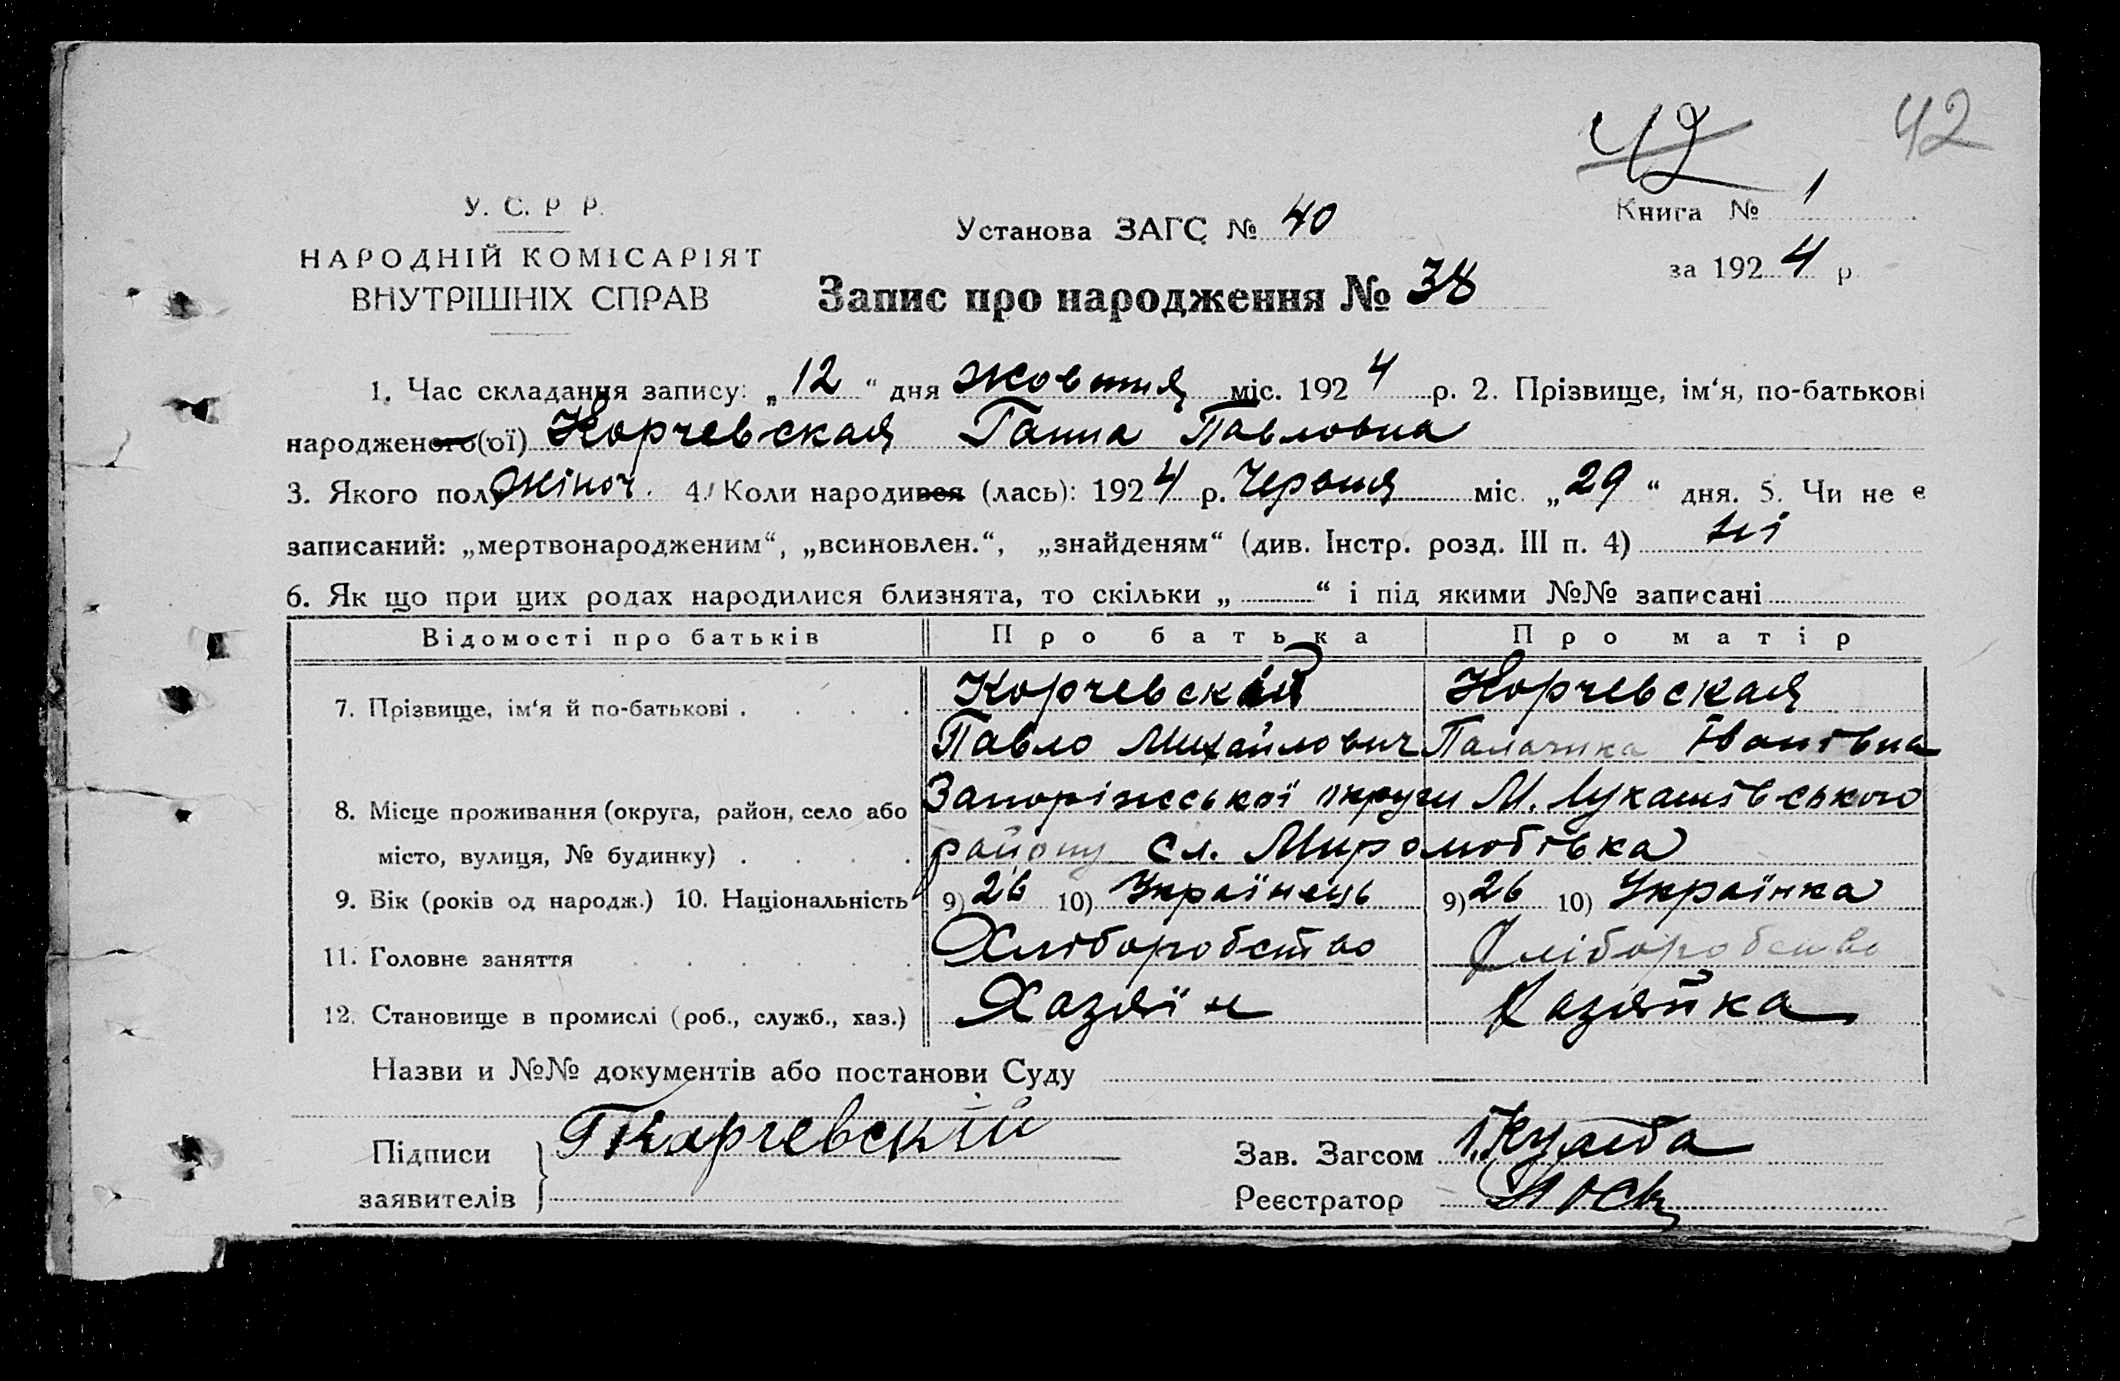 42
42
У. С. Р Р.
НАРОДНІЙ КОМІСАРІЯТ
ВНУТРІШНІХ СПРАВ
Установа ЗАГС № 40
Книга № 1
за 1924 р
Запис про народження № 38
1. Час складання запису: „12“ дня жовтня міс. 1924 р. 2. Прізвище, ім‘я, по-батькові
народженого(ої) Корчевская Ганна Павловна
3. Якого полу жіноч. 4. Коли народився (лась): 1924 р. Червня міс. „29“ дня. 5. Чи не є
записаний: „мертвонародженим“, „всиновлен.“, „знайденям“ (див. Інстр. розд. III п. 4) ні
6. Як що при цих родах народилися близнята, то скільки „ “ і під якими №№ записані
Відомості про батьків Про батька Про матір
7. Прізвище, ім‘я й по-батькові . . . . Корчевский Корчевская
Павло Михайлович Іванівна
8. Місце проживання (округа, район, село або Запоріжської округи М. Лукашівського
місто, вулиця, № будинку) . . . . району сл. Миролюбівка
9. Вік (років од народж.) 10. Національність 9) 26 10) Українець 9) 26 10) Українка
11. Головне заняття . . . . . . Хліборобство Хліборобство
12. Становище в промислі (роб., служб., хаз.) Хазяїн Хазяйка
Назви и №№ документів або постанови Суду
Підписи
заявителів
Корчевский
Зав. Загсом Кулеба
Реєстратор